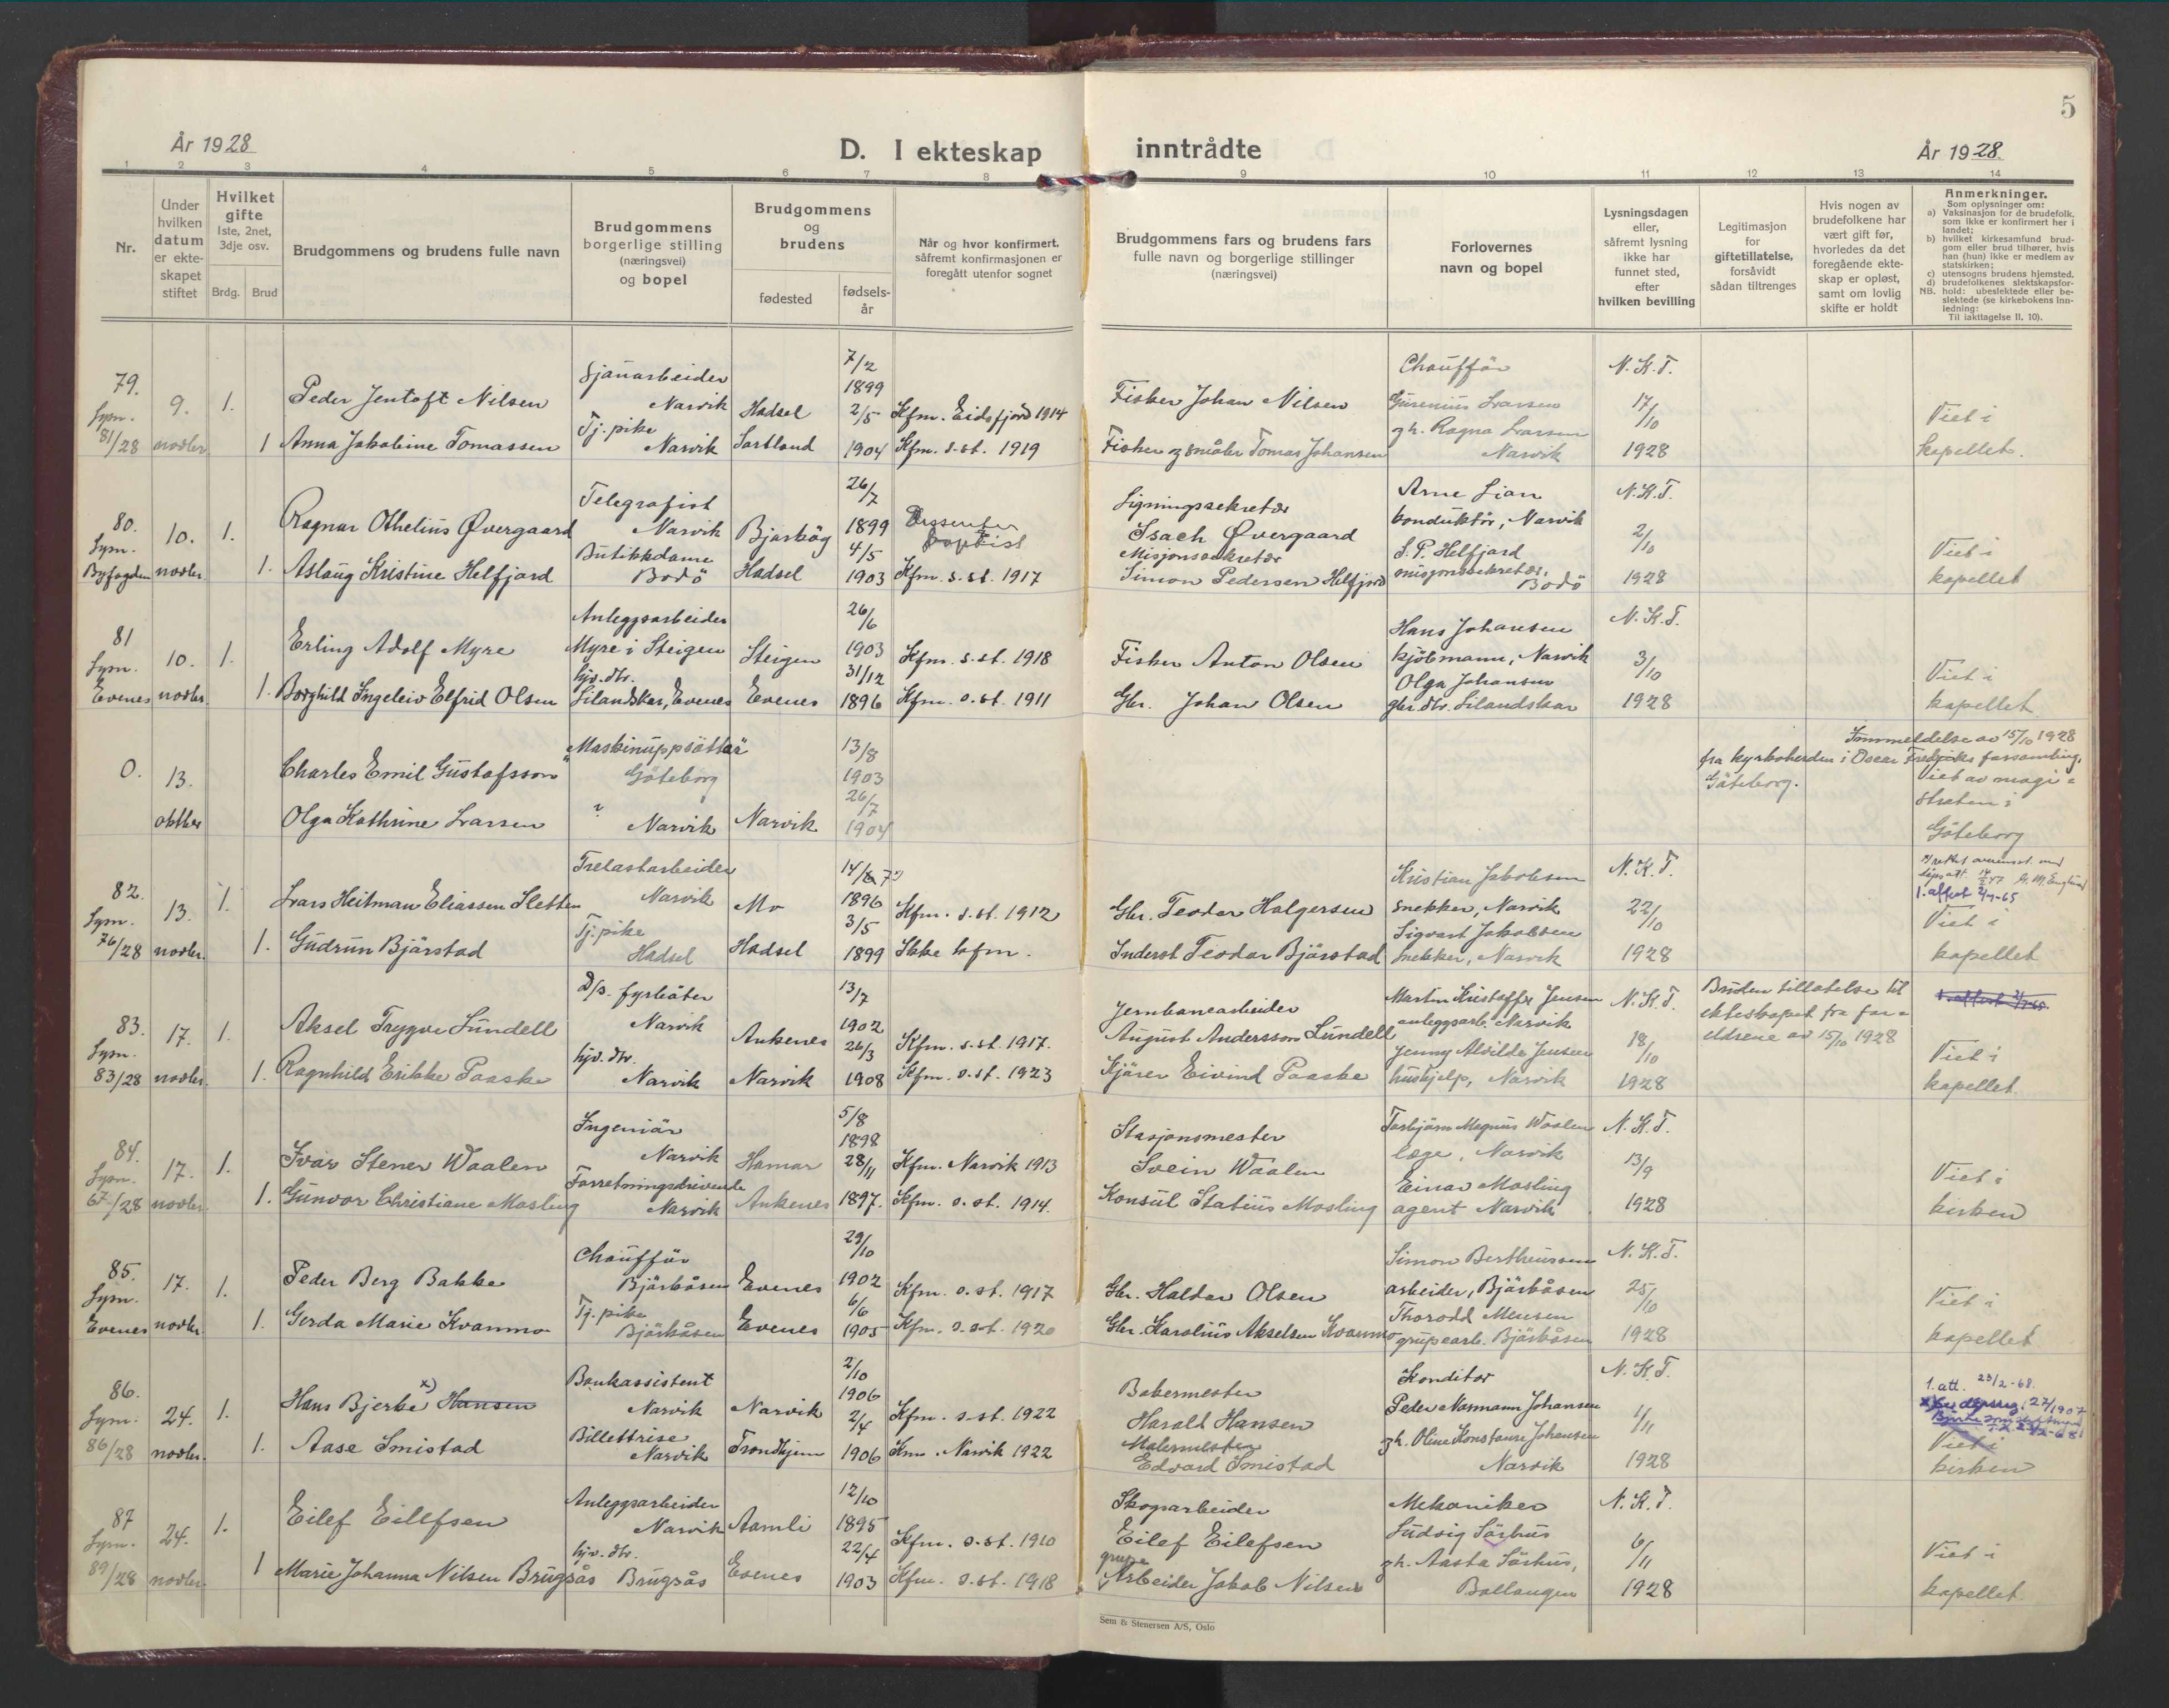 5
År 1928
D. I ekteskap inntrådte
År 1928.
1 2 3 4 5 6 7 8 9 10 11 12 13 14
Nr.
Under
hvilken
datum
er ekte-
skapet
stiftet
Hvilket
gifte
1ste, 2net,
3dje osv.
Brdg. Brud
Brudgommens og brudens fulle navn
Brudgommens
borgerlige stilling
(næringsvei)
og bopel
Brudgommens
og
brudens
fødested
fødsels-
år
Når og hvor konfirmert,
såfremt konfirmasjonen er
foregått utenfor sognet
Brudgommens fars og brudens fars
fulle navn og borgerlige stillinger
(næringsvei)
Forlovernes
navn og bopel
Lysningsdagen
eller,
såfremt lysning
ikke har
funnet sted,
efter
hvilken bevilling
Legitimasjon
for
giftetillatelse,
forsåvidt
sådan tiltrenges
Hvis nogen av
brudefolkene har
vært gift før,
hvorledes da det
foregående ekte-
skap er opløst,
samt om lovlig
skifte er holdt
Anmerkninger.
Som oplysninger om:
a) Vaksinasjon for de brudefolk.
som ikke er konfirmert her i
landet;
b) hvilket kirkesamfund brud-
gom eller brud tilhører, hvis
han (hun) ikke er medlem av
statskirken;
c) utensogns brudens hjemsted.
d) brudefolkenes slektskapsfor-
NB. hold: ubeslektede eller be-
slektede (se kirkebokens inn-
ledning:
Til iakttagelse II. 10).
79.
Lysn.
81/28
9.
novbr.
1.
1
Peder Jentoft Nilsen
Anna Jakobine Tomassen
Sjauarbeider
Narvik
Tj. pike
Narvik
Hadsel
Sortland
7/2
1899
2/5
1904
Kfm. Eidsfjord 1914
Kfm. s. st. 1919
Fisker Johan Nilsen
Fisker og småbr. Tomas Johansen
Chaufför
Larsen
og h. Ragna Larsen
Narvik
N. K. T.
17/10
1928
Viet i
kapellet.
80.
Lysn.
Byfogden
10.
novbr.
1.
1.
Ragnar Othelius Øvergaard
Aslaug Kristine Helfjord
Telegrafist
Narvik
Butikkdame
Bodö
Bjarköy
Hadsel
26/7
1899
4/5
1903
Dissenter
baptist
Kfm. s. st. 1917
Ligningssekretær
Isach Øvergaard
Misjonssekretær
Simon Pedersen Helfjord
Arne Lian
konduktör, Narvik
S. P. Helfjord
misjonssekretær,
Bodö
N. K. T.
2/10
1928
Viet i
kapellet
81
Lysn.
Evenes
10.
novbr.
1.
1.
Erling Adolf Myre
Borghild Ingeleiv Elfrid Olsen
Anleggsarbeider
Myre i Steigen
hjv. dtr.
Lilandskar, Evenes
Steigen
Evenes
26/6
1903
31/12
1896
Kfm. s. st. 1918
Kfm. s. st. 1911
Fisker Anton Olsen
Gbr. Johan Olsen
Hans Johansen
kjöbmann, Narvik
Olga Johansen
gbr. dtr. Lilandskar
N. K. T.
3/10
1928
Viet i
kapellet
0.
13.
oktber
Charles Emil Gustafsson
Olga Kathrine Larsen
Maskinuppsättar
Göteborg
?
Narvik
Narvik
13/8
1903
26/7
1904
Innmeldelse av 15/10 1928
fra kyrkoherden i Oscar Fredriks forsamling,
Göteborg.
Viet av magi-
straten i
Göteborg
82.
Lysn.
76/28
13.
novbr.
1.
1.
Lars Heitman Eliassen Sletten
Gudrun Bjårstad
Trelastarbeider
Narvik
Tj. pike
Hadsel
Mo
Hadsel
1896
3/5
1899
Kfm. s. st. 1912
Ikke kfm.
Gbr. Teodor Holgersen
Inderst Teodor Bjårstad
Kristian Jakobsen
snekker, Narvik
Sigvart Jakobsen
snekker, Narvik
N. K. T.
22/10
1928
1. attest 2/7-65
Viet i
kapellet
83.
Lysn.
83/28
17.
novbr.
1.
1.
Aksel Trygve Lundell
Ragnhild Erikke Paaske
D/s. fyrböter
Narvik
hjv. dtr.
Narvik
Ankenes
Narvik
13/7
1902
26/3
1908
Kfm. s. st. 1917.
Kfm. s. st. 1923
Jernbanearbeider
August Anderssen Lundell
Kjörer Eivind Paaske
Martin Kristoffer Jensen
anleggsarb. Narvik
Jenny Alvilde Jensen
hushjelp, Narvik
N. K. T.
18/10
1928
Bruden tillatelse til
ekteskapet fra for-
eldrene av 15/10 1928
Viet i
kapellet.
84.
Lysn.
67/28
17.
novbr.
1.
1.
Ivar Stener Waalen
Gunvor Christiane Mosling
Ingeniör
Narvik
Forretningsdrivende
Narvik
Hamar
Ankenes
5/8
1898
28/11
1897.
Kfm. Narvik 1913
Kfm. s. st. 1914.
Stasjonsmester
Svein Waalen
Konsul Statius Mosling
Torbjörn Magnus Waalen
læge, Narvik
Einar Mosling
agent Narvik
N. K. T.
13/9
1928
Viet i
kirken
85.
Lysn.
Evenes
17.
novbr.
1.
1.
Peder Berg Bakke
Gerda Marie Kvanmo
Chaufför
Bjårkåsen
Tj. pike
Bjårkåsen
Evenes
Evenes
29/10
1902
6/6
1905
Kfm. s. st. 1917
Kfm. s. st. 1920
Gbr. Haldor Olsen
Gbr. Karolius Akselsen Kvanmo
Simon Bertheussen
arbeider, Bjårkåsen
Thorodd Mensen
grupearb. Bjårkåsen
N. K. T.
25/10
1928
Viet i
kapellet.
86.
Lysn.
86/28
24.
novbr.
1.
1.
Hans Bjerke x) Hansen
Aase Smistad
Bankassistent
Narvik
Billettrise
Narvik
Narvik
Trondhjem
2/10
1906
2/4
1906
Kfm. s. st. 1922
Kfm. Narvik 1922
Bakermester
Harald Hansen
Malermester
Edvard Smistad
Konditor
Peder Normann Johansen
og h. Oline Konstanse Johansen
Narvik
N. K. T.
1/11
1928
1. att. 23/2-68.
Viet i
kirken
87
Lysn.
89/28
24.
novbr.
1.
1
Eilef Eilefsen
Marie Johanna Nilsen Brugsås
Anleggsarbeider
Narvik
hjv. dtr.
Brugsås
Aamli
Evenes
12/10
1895
22/4
1903
Kfm. s. st. 1910
Kfm. s. st. 1918
Skogarbeider
Eilef Eilefsen
grupe
Arbeider Jakob Nilsen
Mekaniker
Ludvig Sörhus
og h. Aasta Sörhus,
Ballangen
N. K. T.
6/11
1928
Viet i
kapellet.
Sem & Stenersen A/S, Oslo